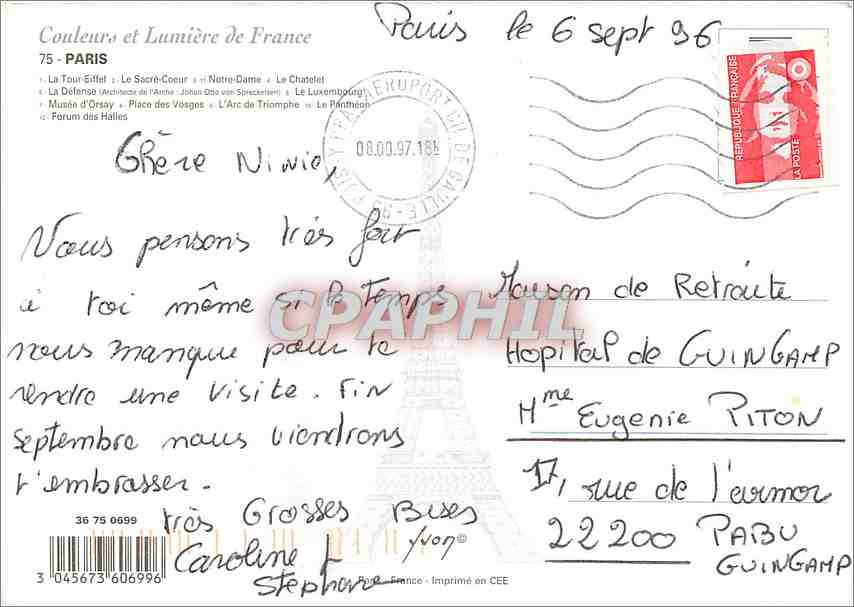 Couleurs et Lumière de France
75 - PARIS
1 - La Tour-Eiffel 2 - Le Sacré-Coeur 3-11 - Notre-Dame 4 - Le Chatelet
5 - La Défense (Architecte de l'Arche : Johan Otto von Spreckelsen) 6 - Le Luxembourg
7 - Musée d'Orsay 8 - Place des Vosges 9 - L'Arc de Triomphe 10 - Le Panthéon
12 - Forum des Halles
Paris le 6 sept 96
AEROPORT CH. DE GAULLE - 95
08.00.97.18H
RÉPUBLIQUE FRANÇAISE
LA POSTE
Chère Ninie,
Nous pensons très fort
à toi même si le temps
nous manque pour te
rendre une visite. Fin
septembre nous viendrons
t'embrasser.
très Grosses Bises
Caroline &
Stephane
Maison de Retraite
Hopital de GUINGAMP
Mme Eugenie PITON
17, rue de l'armor
22200 PABU
GUINGAMP
CPAPHIL
36 75 0699
3 045673 606996
yvon©
Paris - France - Imprimé en CEE